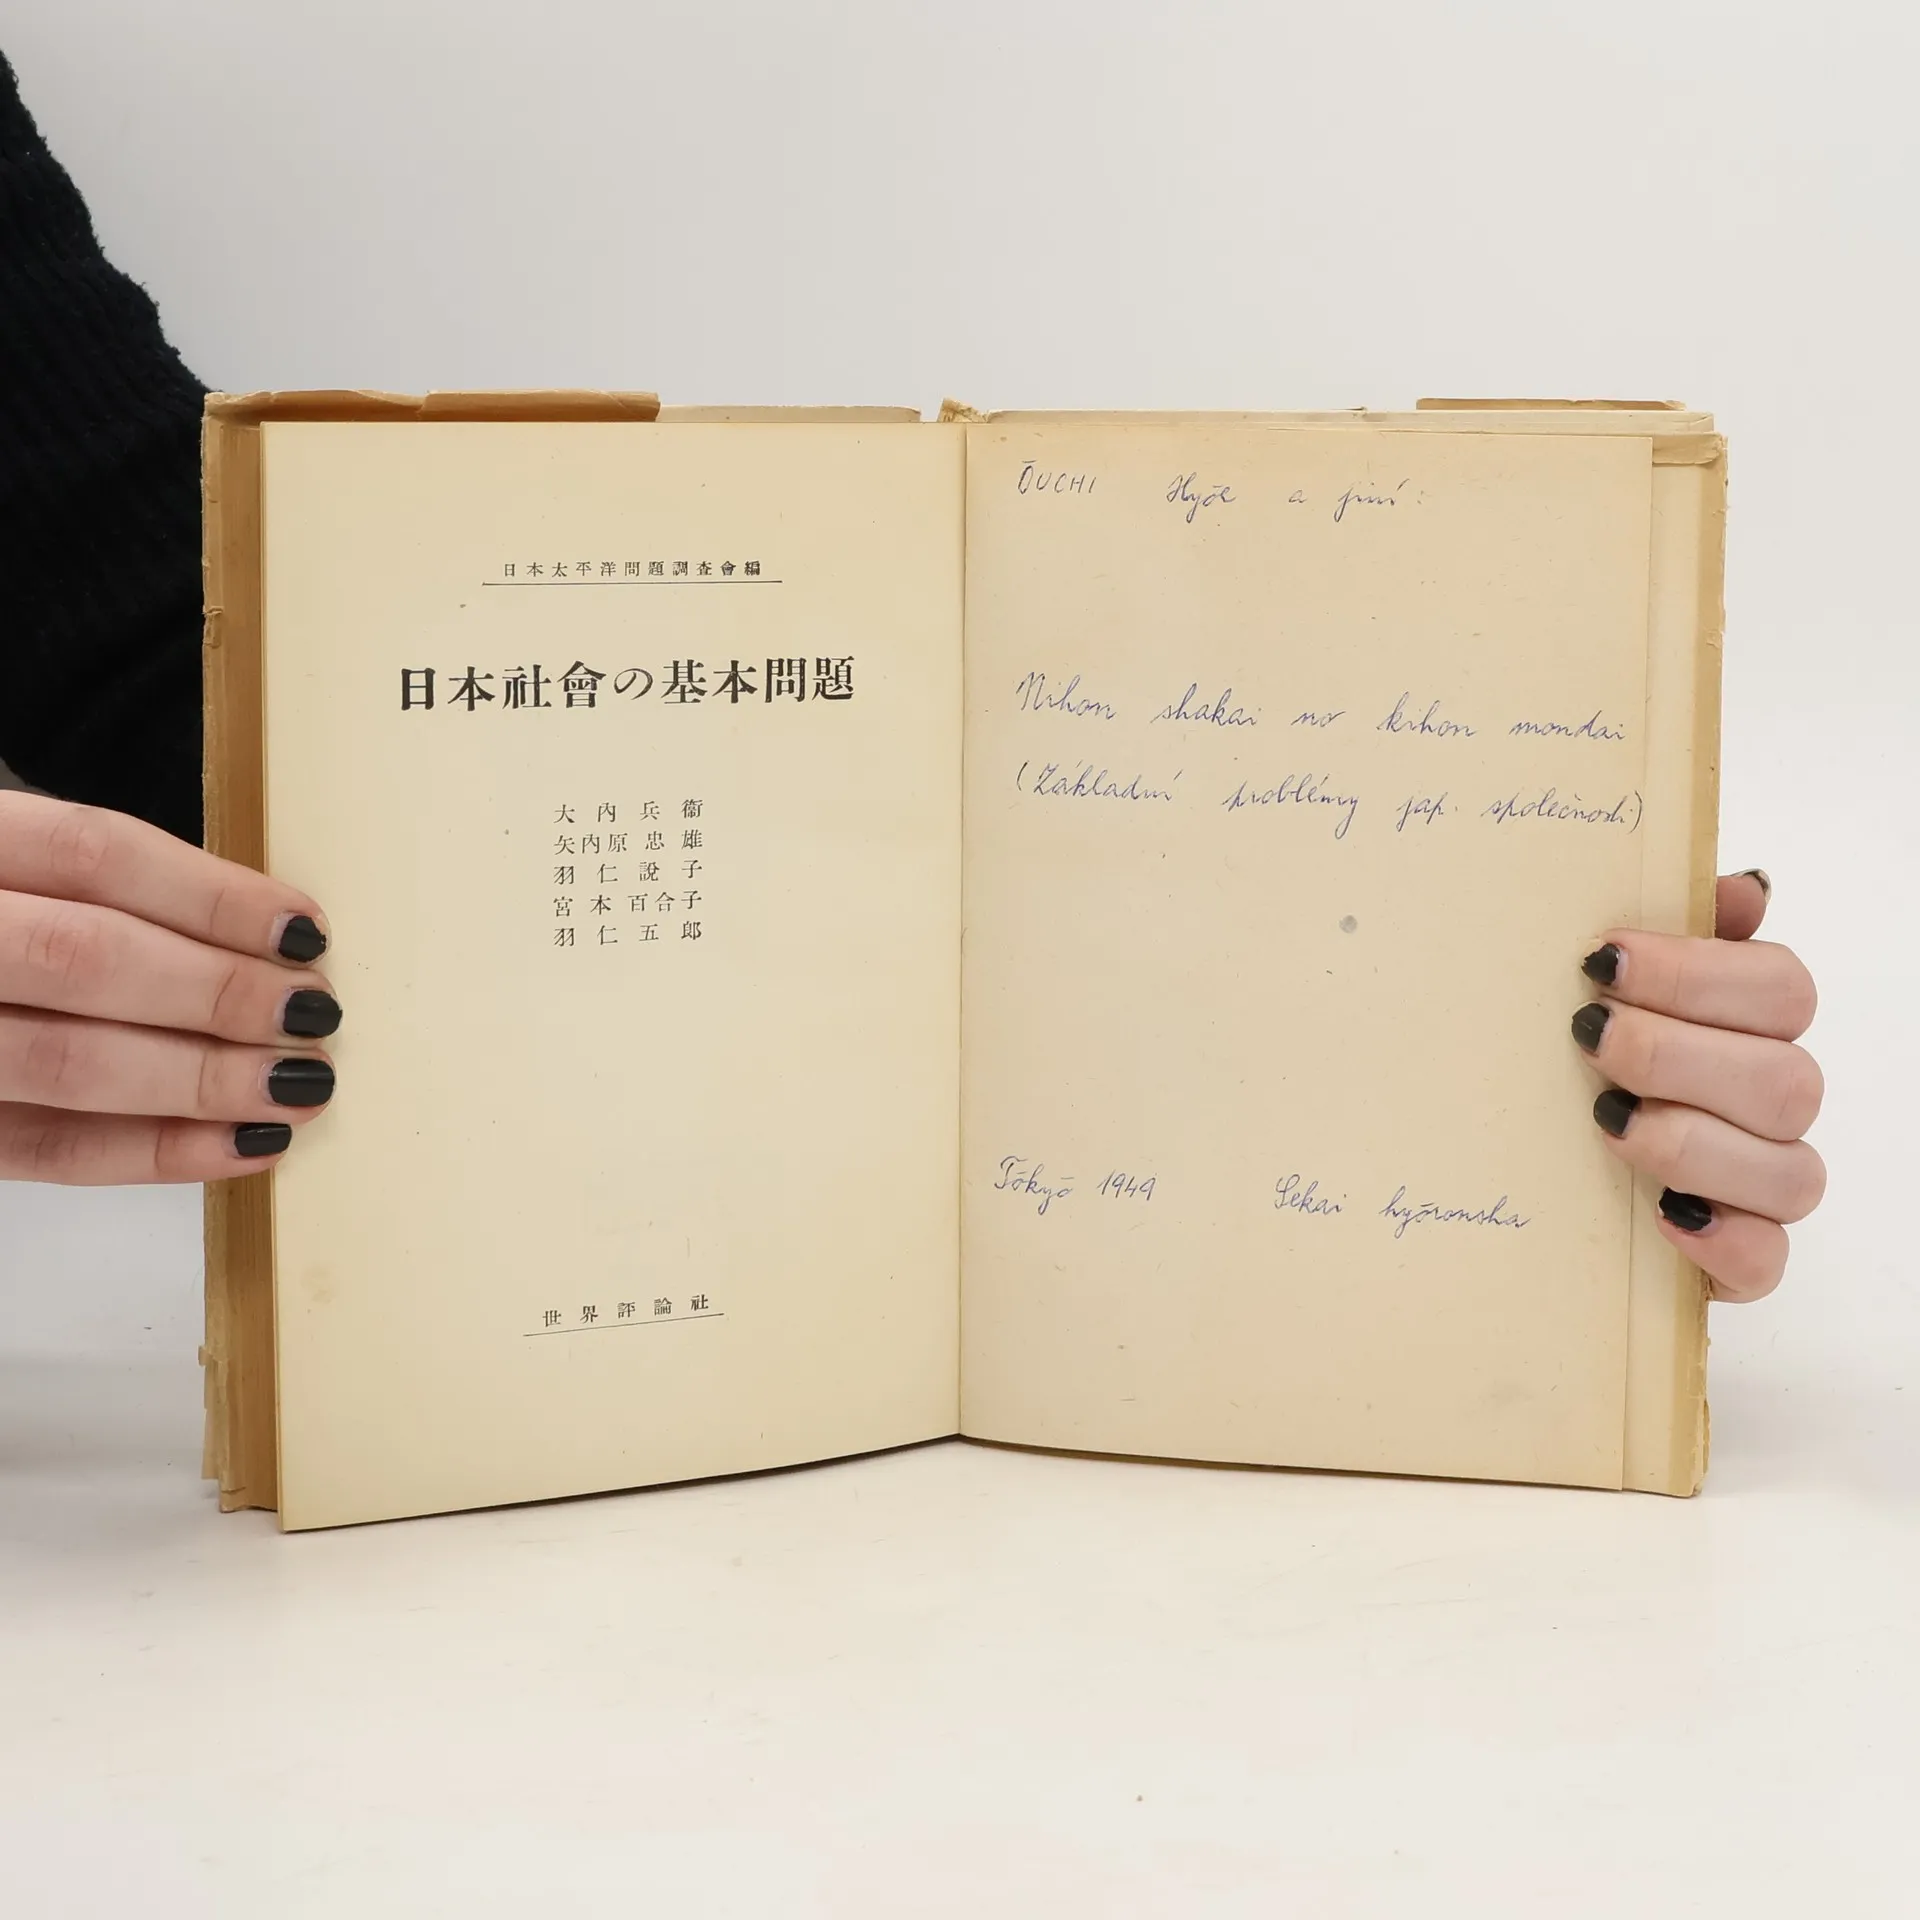 日本太平洋問題調査會編
日本社會の基本問題
大内兵衞
矢内原忠雄
羽仁說子
宮本百合子
羽仁五郎
世界評論社
ŌUCHI Hyōe a jiní:
Nihon shakai no kihon mondai
(Základní problémy jap. společnosti)
Tōkyō 1949 Sekai hyōronsha